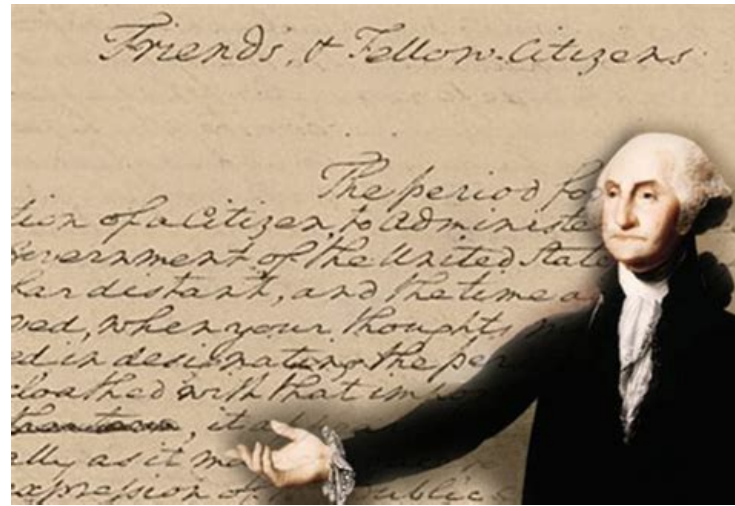 Friends, & Fellow-Citizens
The period fo
tion of a Citizen, to administe
Government of the United State
far distant, and the time a
ved, when your thoughts
ed in designating the per
cloathed with that impo
it appe
ally as it ma
expression of the public